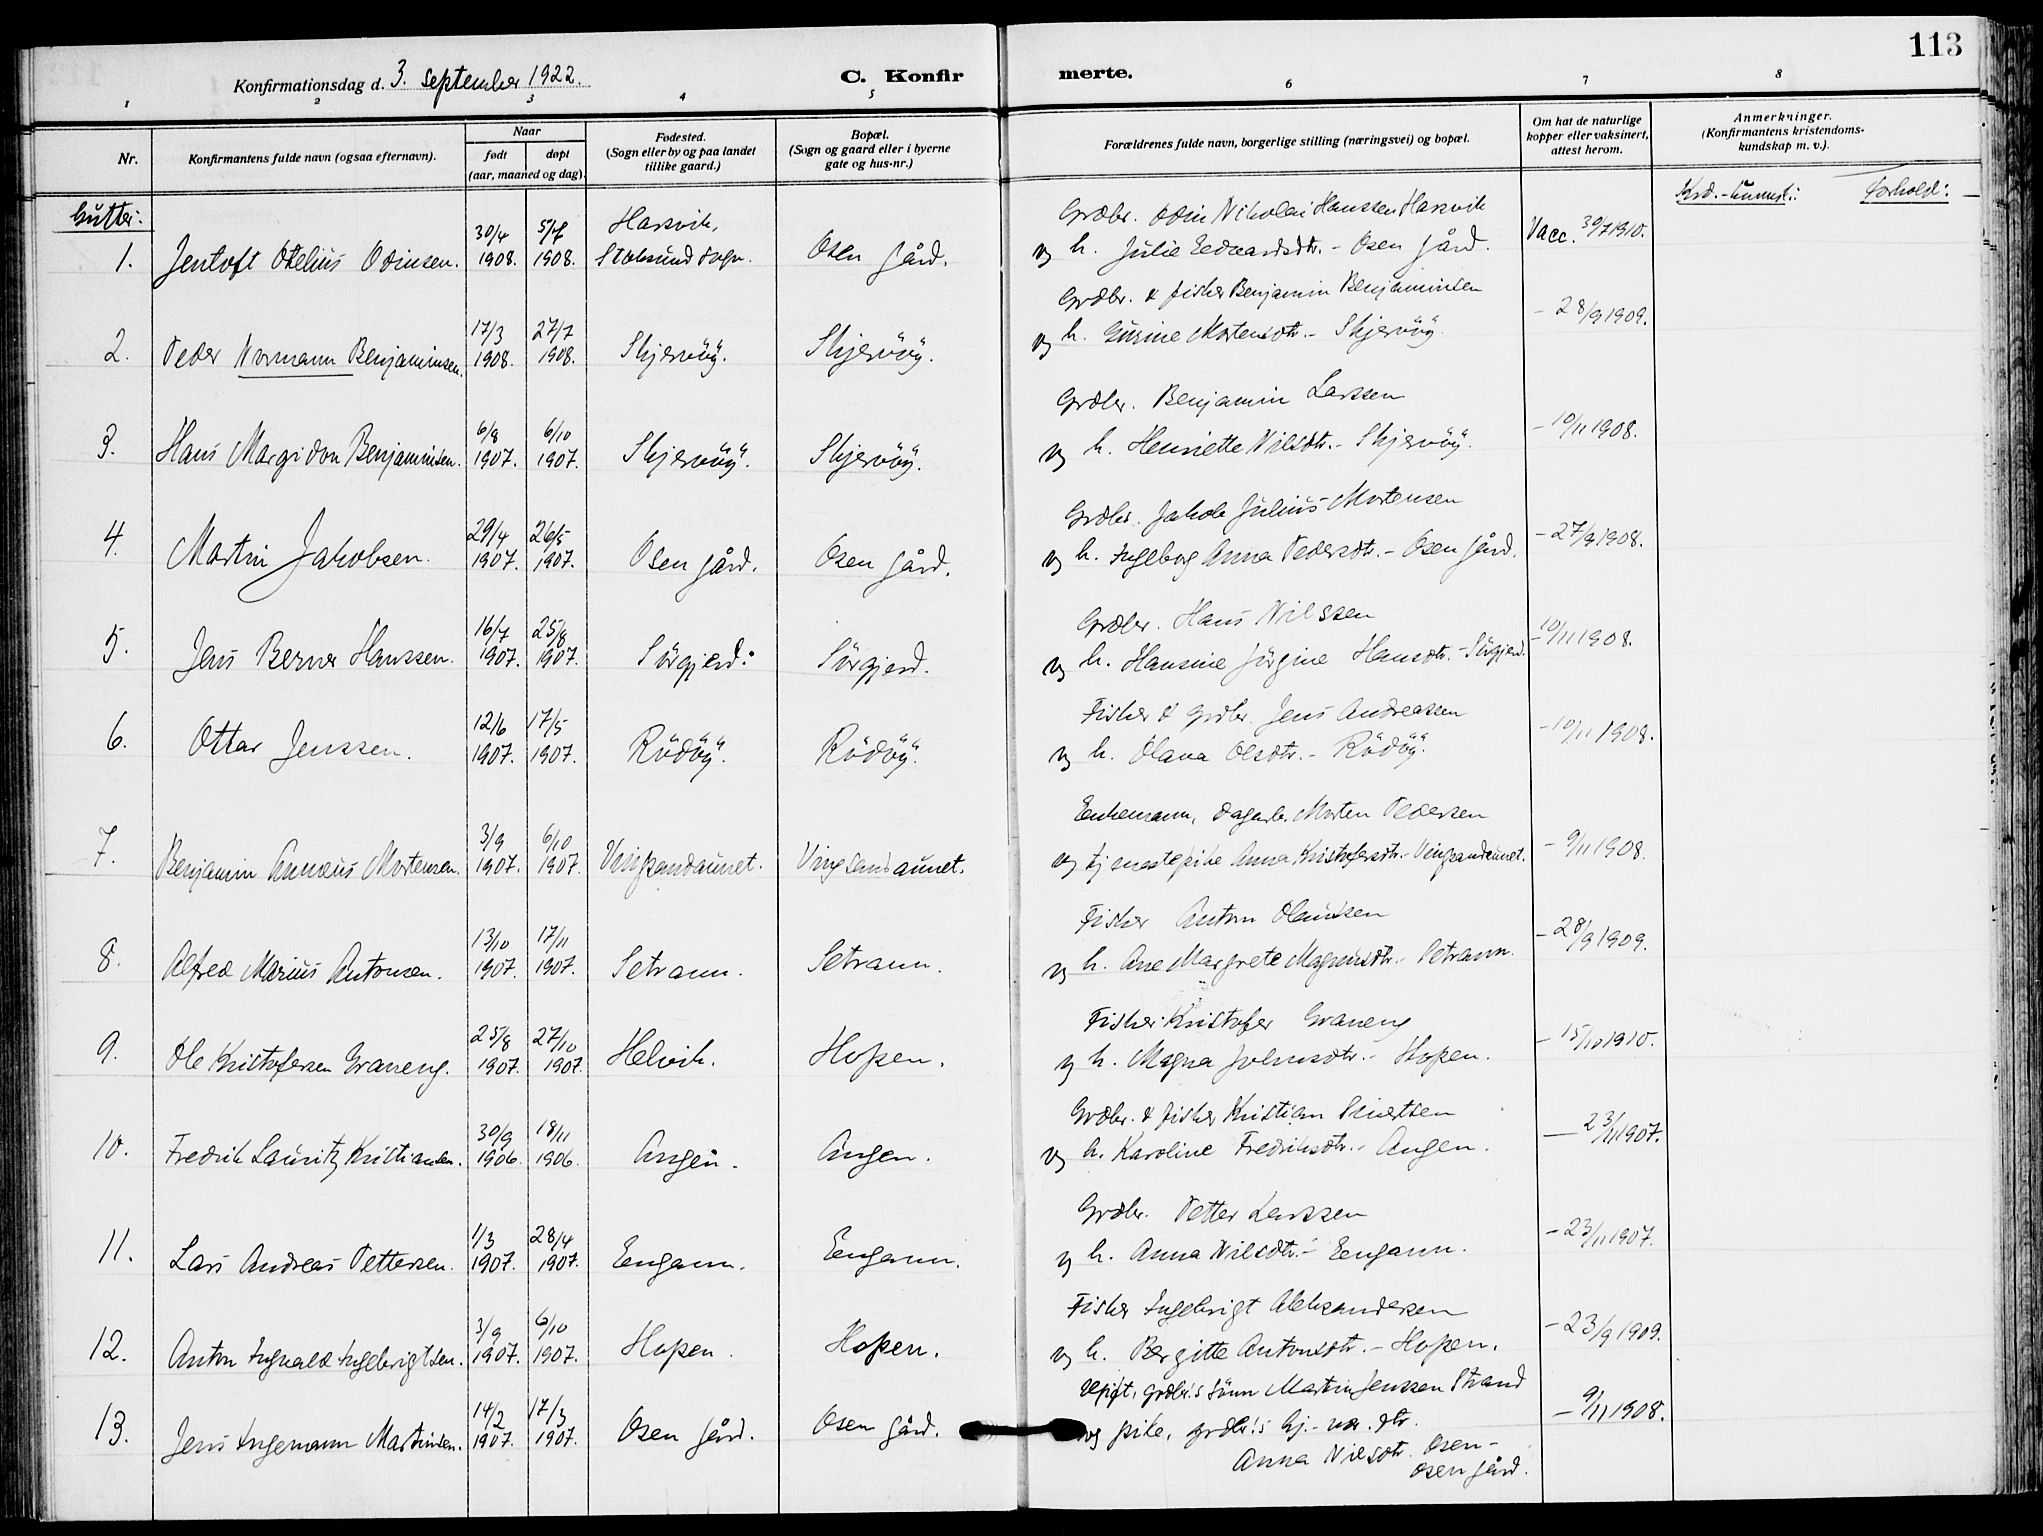 113
Konfirmationsdag d. 3. september 1922.
C. Konfir
merte.
1 2 3 4 5 6 7 8
Nr.
Konfirmantens fulde navn (ogsaa efternavn).
Naar
født
døpt
(aar, maaned og dag).
Fødested.
(Sogn eller by og paa landet
tillike gaard.)
Bopæl.
(Sogn og gaard eller i byerne
gate og hus-nr.)
Forældrenes fulde navn, borgerlige stilling (næringsvei) og bopæl.
Om hat de naturlige
kopper eller vaksinert,
attest herom.
Anmerkninger.
(Konfirmantens kristendoms-
kundskap m. v.).
Gutter:
Krd.-kunnsk.: Forhold:
30/4 5/7 Harsvik, Grdbr. Odin Nikolai Hanssen Harsvik
1. Jentoft Otelius Odinsen. 1908. 1908. Stoksund sogn. Osen gård. og h. Julie Edvardsdtr. - Osen gård. Vacc. 30/7 1910.
17/3 27/7 Grdbr. & fisker Benjamin Benjaminsen
2. Peder Normann Benjaminsen. 1908. 1908. Skjervöy. Skjervöy. og h. Gurine Mortensdtr. - Skjervöy. - 28/9 1909.
6/8 6/10 Grdbr. Benjamin Larssen
3. Hans Margidon Benjaminsen. 1907. 1907. Skjervöy. Skjervöy. og h. Henriette Nilsdtr. - Skjervöy. - 10/11 1908.
29/4 26/5 Grdbr. Jakob Julius Mortensen
4. Martin Jakobsen. 1907. 1907. Osen gård. Osen gård. og h. Ingeborg Anna Pedersdtr. - Osen gård. - 27/9 1908.
16/7 25/8 Grdbr. Hans Nilssen
5. Jens Berner Hanssen. 1907. 1907. Sörgjerd. Sörgjerd. og h. Hansine Jörgine Hansdtr. - Sörgjerd. - 10/11 1908.
12/6 17/5 Fisker & grdbr. Jens Andreassen
6. Ottar Jenssen. 1907. 1907. Rödöy. Rödöy. og h. Olava Olsdtr. - Rödöy. - 10/11 1908.
3/9 6/10 Enkemann, dagarb. Morten Pedersen
7. Benjamin Annæus Mortensen. 1907. 1907. Vingsandaunet. Vingsandaunet. og tjenestepike Anna Kristofersdtr. - Vingsandaunet. - 9/11 1908.
13/10 17/11 Fisker Anton Olaussen
8. Alfred Marius Antonsen. 1907. 1907. Setrann. Setrann. og h. Ane Margrete Magnusdtr. - Setrann. - 28/9 1909.
25/8 27/10 Fisker Kristofer Graneng
9. Ole Kristofersen Graneng. 1907. 1907. Helvik. Hopen. og h. Magna Johnsdtr. - Hopen. - 15/10 1910.
30/9 18/11 Grdbr. & fisker Kristian Sivertsen
10. Fredrik Lauritz Kristiansen. 1906. 1906. Angen. Angen. og h. Karoline Fredriksdtr. - Angen. - 23/11 1907.
1/3 28/4 Grdbr. Petter Larssen
11. Lars Andreas Pettersen. 1907. 1907. Eengann. Eengann. og h. Anna Nilsdtr. - Eengann. - 23/11 1907.
3/9 6/10 Fisker Ingebrigt Aleksandersen
12. Anton Ingvald Ingebrigtsen. 1907. 1907. Hopen. Hopen. og h. Bergitte Antonsdtr. - Hopen. - 23/9 1909.
14/2 17/3 Ugift, grdbr.s sönn Martin Jenssen Strand
13. Jens Ingemann Martinsen. 1907. 1907. Osen gård. Osen gård. og pike, grdbr.s hj.-vær. dtr. - 9/11 1908.
Anna Nilsdtr. Osen -
Osen gård.